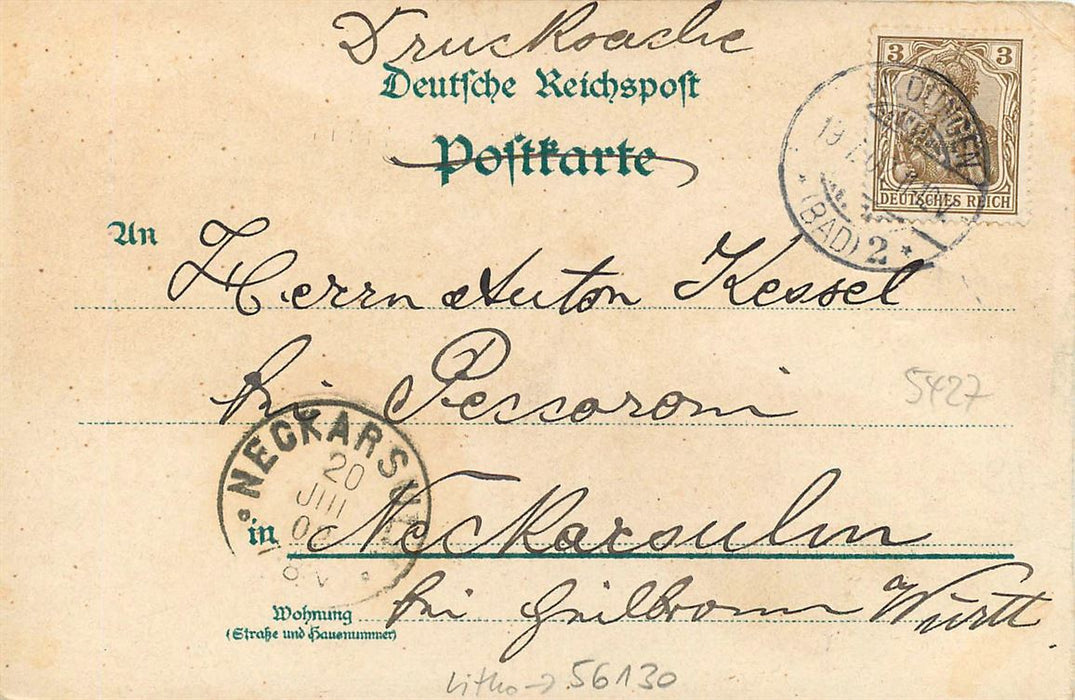 Drucksache
Deutsche Reichspost
Postkarte
3 3
DEUTSCHES REICH
DÜNGEN
19
(BAD) 2
An Herrn Anton Kessel
bei Pessaroni
5427
NECKARSU
20
JUL
in Neckarsulm
8 V
Wohnung
(Straße und Hausnummer)
bei Heilbronn a/ Württ.
Litho → 56130